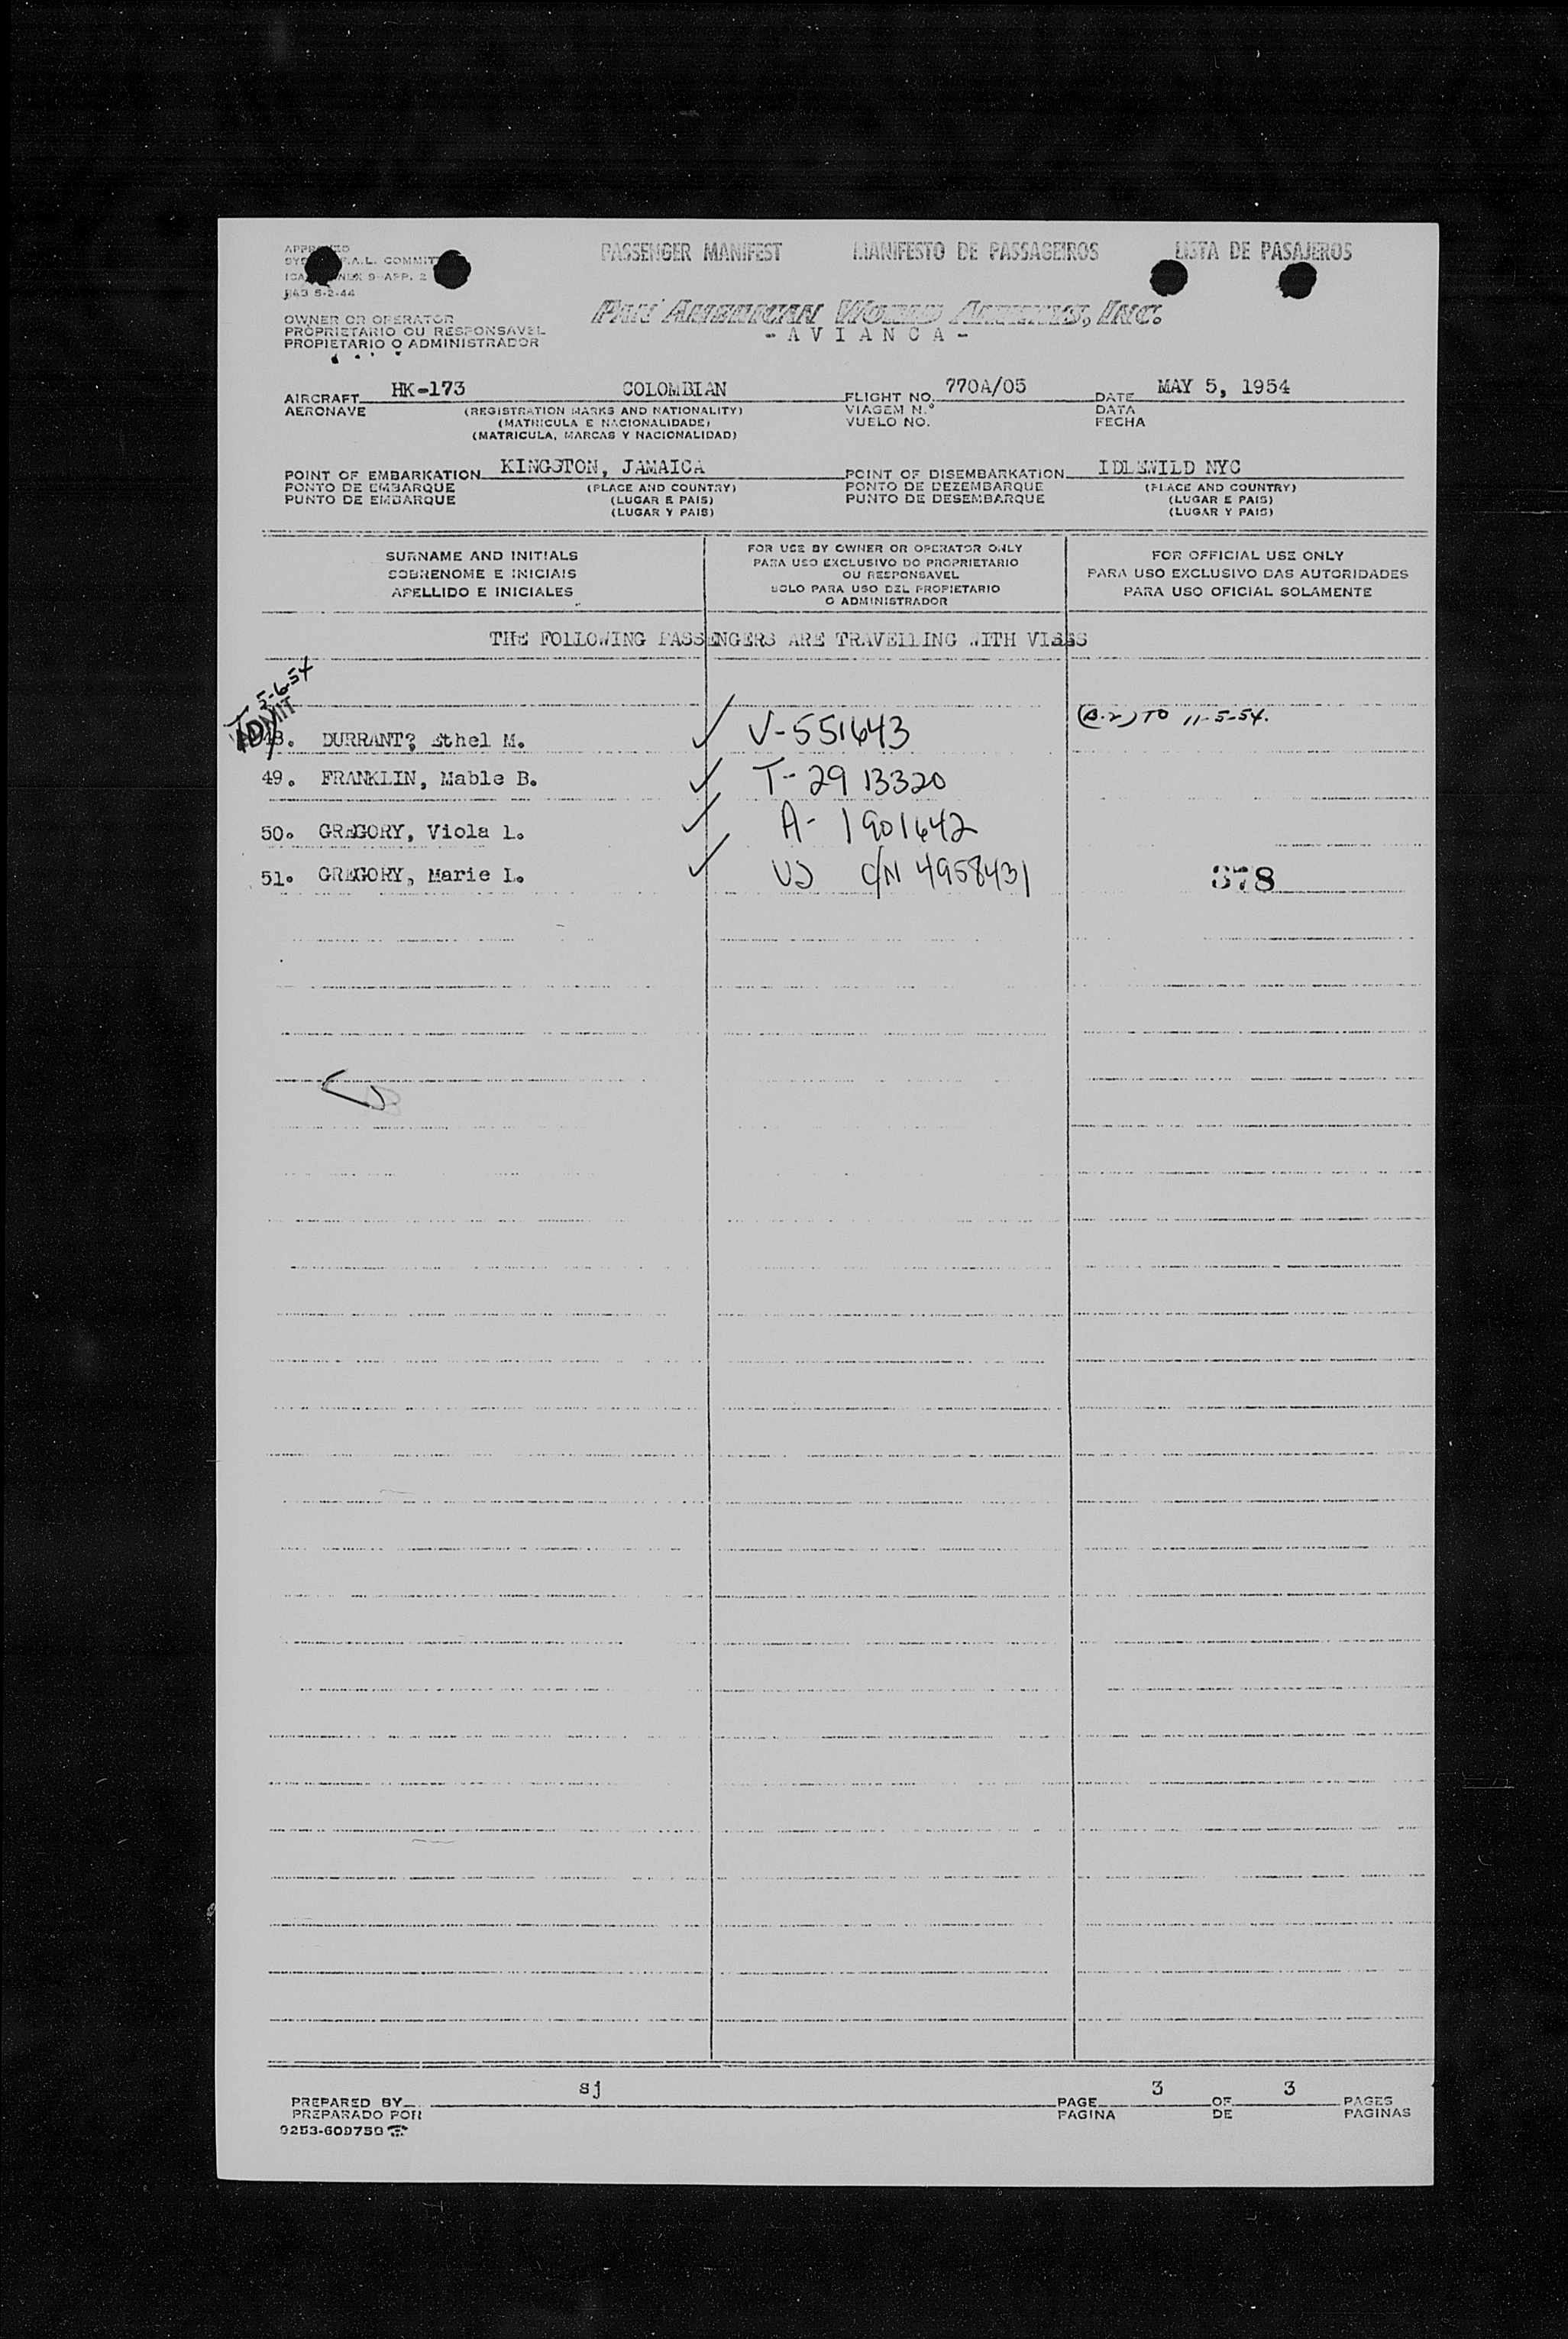 PASSENGER MANIFEST MANIFESTO DE PASSAGEIROS LISTA DE PASAJEROS
F.A.L.
9-APP. 2
5-2-44
OWNER OR OPERATOR
PROPRIETARIO OU RESPONSAVEL
PROPIETARIO O ADMINISTRADOR
PAN AMERICAN WORLD AIRWAYS, INC.
- A V I A N C A -
AIRCRAFT HK-173 COLOMBIAN FLIGHT NO. 770A/05 DATE MAY 5, 1954
AERONAVE (REGISTRATION MARKS AND NATIONALITY) VIAGEM N.º DATA
(MATRICULA E NACIONALIDADE) VUELO NO. FECHA
(MATRICULA, MARCAS Y NACIONALIDAD)
POINT OF EMBARKATION KINGSTON, JAMAICA POINT OF DISEMBARKATION IDLEWILD NYC
PONTO DE EMBARQUE (PLACE AND COUNTRY) PONTO DE DEZEMBARQUE (PLACE AND COUNTRY)
PUNTO DE EMBARQUE (LUGAR E PAIS) PUNTO DE DESEMBARQUE (LUGAR E PAIS)
(LUGAR Y PAIS) (LUGAR Y PAIS)
SURNAME AND INITIALS
SOBRENOME E INICIAIS
APELLIDO E INICIALES
FOR USE BY OWNER OR OPERATOR ONLY
PARA USO EXCLUSIVO DO PROPRIETARIO
OU RESPONSAVEL
SOLO PARA USO DEL PROPIETARIO
O ADMINISTRADOR
FOR OFFICIAL USE ONLY
PARA USO EXCLUSIVO DAS AUTORIDADES
PARA USO OFICIAL SOLAMENTE
THE FOLLOWING PASSENGERS ARE TRAVELLING WITH VISAS
5-6-54
ADMIT
48. DURRANT? Ethel M. ✓ V-551643 (B-2) TO 11-5-54.
49. FRANKLIN, Mable B. ✓ T-2913320
50. GREGORY, Viola L. ✓ A-1901642
51. GREGORY, Marie L. ✓ US C/N 4958431 378
PREPARED BY sj PAGE 3 OF 3 PAGES
PREPARADO POR PAGINA DE PAGINAS
9253-609750